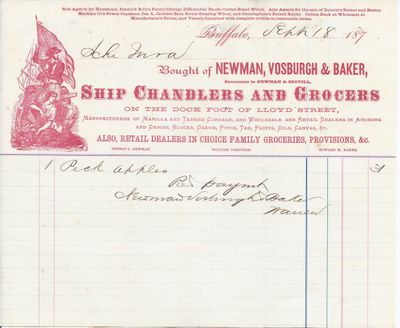 Sole Agents for Hammond, Pennock & Co's Patent Gurney Differential Pacific Geared Wheel. Also Agents for the sale of Talbott's Patent and Boston
Machine Co's Power Capstans, Jas. L. Jackson Bros. Screw Steering Wheel, and Cunningham's Patent Reefer. Cotton Duck at Wholesale at
Manufacturer's Prices, and Vessels furnished with complete outfits on reasonable terms.
Buffalo, Sept 18 187
Sche Mora
Bought of NEWMAN, VOSBURGH & BAKER,
SUCCESSORS TO NEWMAN & SCOVILL,
SHIP CHANDLERS AND GROCERS
ON THE DOCK FOOT OF LLOYD STREET,
MANUFACTURERS OF MANILLA AND TARRED CORDAGE, AND WHOLESALE AND RETAIL DEALERS IN ANCHORS
AND CHAINS, BLOCKS, OAKUM, PITCH, TAR, PAINTS, OILS, CANVAS, &C.
ALSO, RETAIL DEALERS IN CHOICE FAMILY GROCERIES, PROVISIONS, &C.
GEORGE L. NEWMAN. WILLIAM VOSBURGH. HOWARD H. BAKER.
1 Peck apples
Rd payment
Newman Vosburgh & Baker